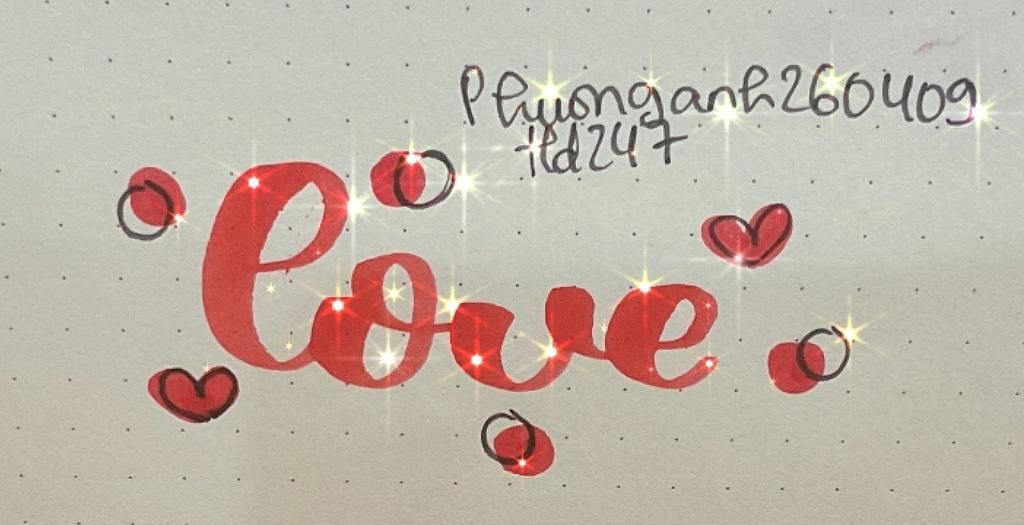 Phuonganh260409
tld247
love